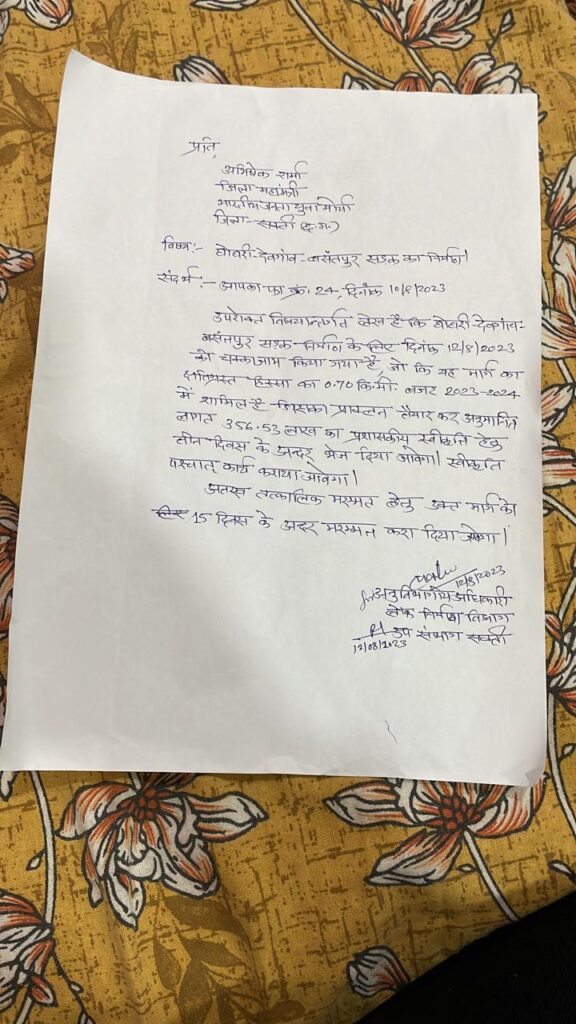 प्रति,
अभिषेक शर्मा
जिला महामंत्री
भारतीय जनता युवा मोर्चा
जिला- सक्ती (छ.ग.)
विषय:- देवगांव- बसंतपुर सड़क का निर्माण।
संदर्भ:- आपका पत्र क्रं. 24, दिनांक 10/8/2023
उपरोक्त विषयान्तर्गत लेख है कि देवगांव-
बसंतपुर सड़क निर्माण के लिए दिनांक 12/8/2023
को चक्काजाम किया गया है, जो कि यह मार्ग का
क्षतिग्रस्त हिस्सा का 0.70 कि.मी. बजट 2023-2024
में शामिल है जिसका प्राक्कलन तैयार कर अनुमानित
लागत 356.53 लाख का प्रशासकीय स्वीकृति हेतु
तीन दिवस के अन्दर भेज दिया जावेगा। स्वीकृति
पश्चात् कार्य कराया जावेगा।
अतएव तत्कालिक मरम्मत हेतु उक्त मार्ग को
15 दिवस के अन्दर मरम्मत करा दिया जावेगा।
12/8/2023
अनुविभागीय अधिकारी
लोक निर्माण विभाग
उप संभाग सक्ती
12/08/2023